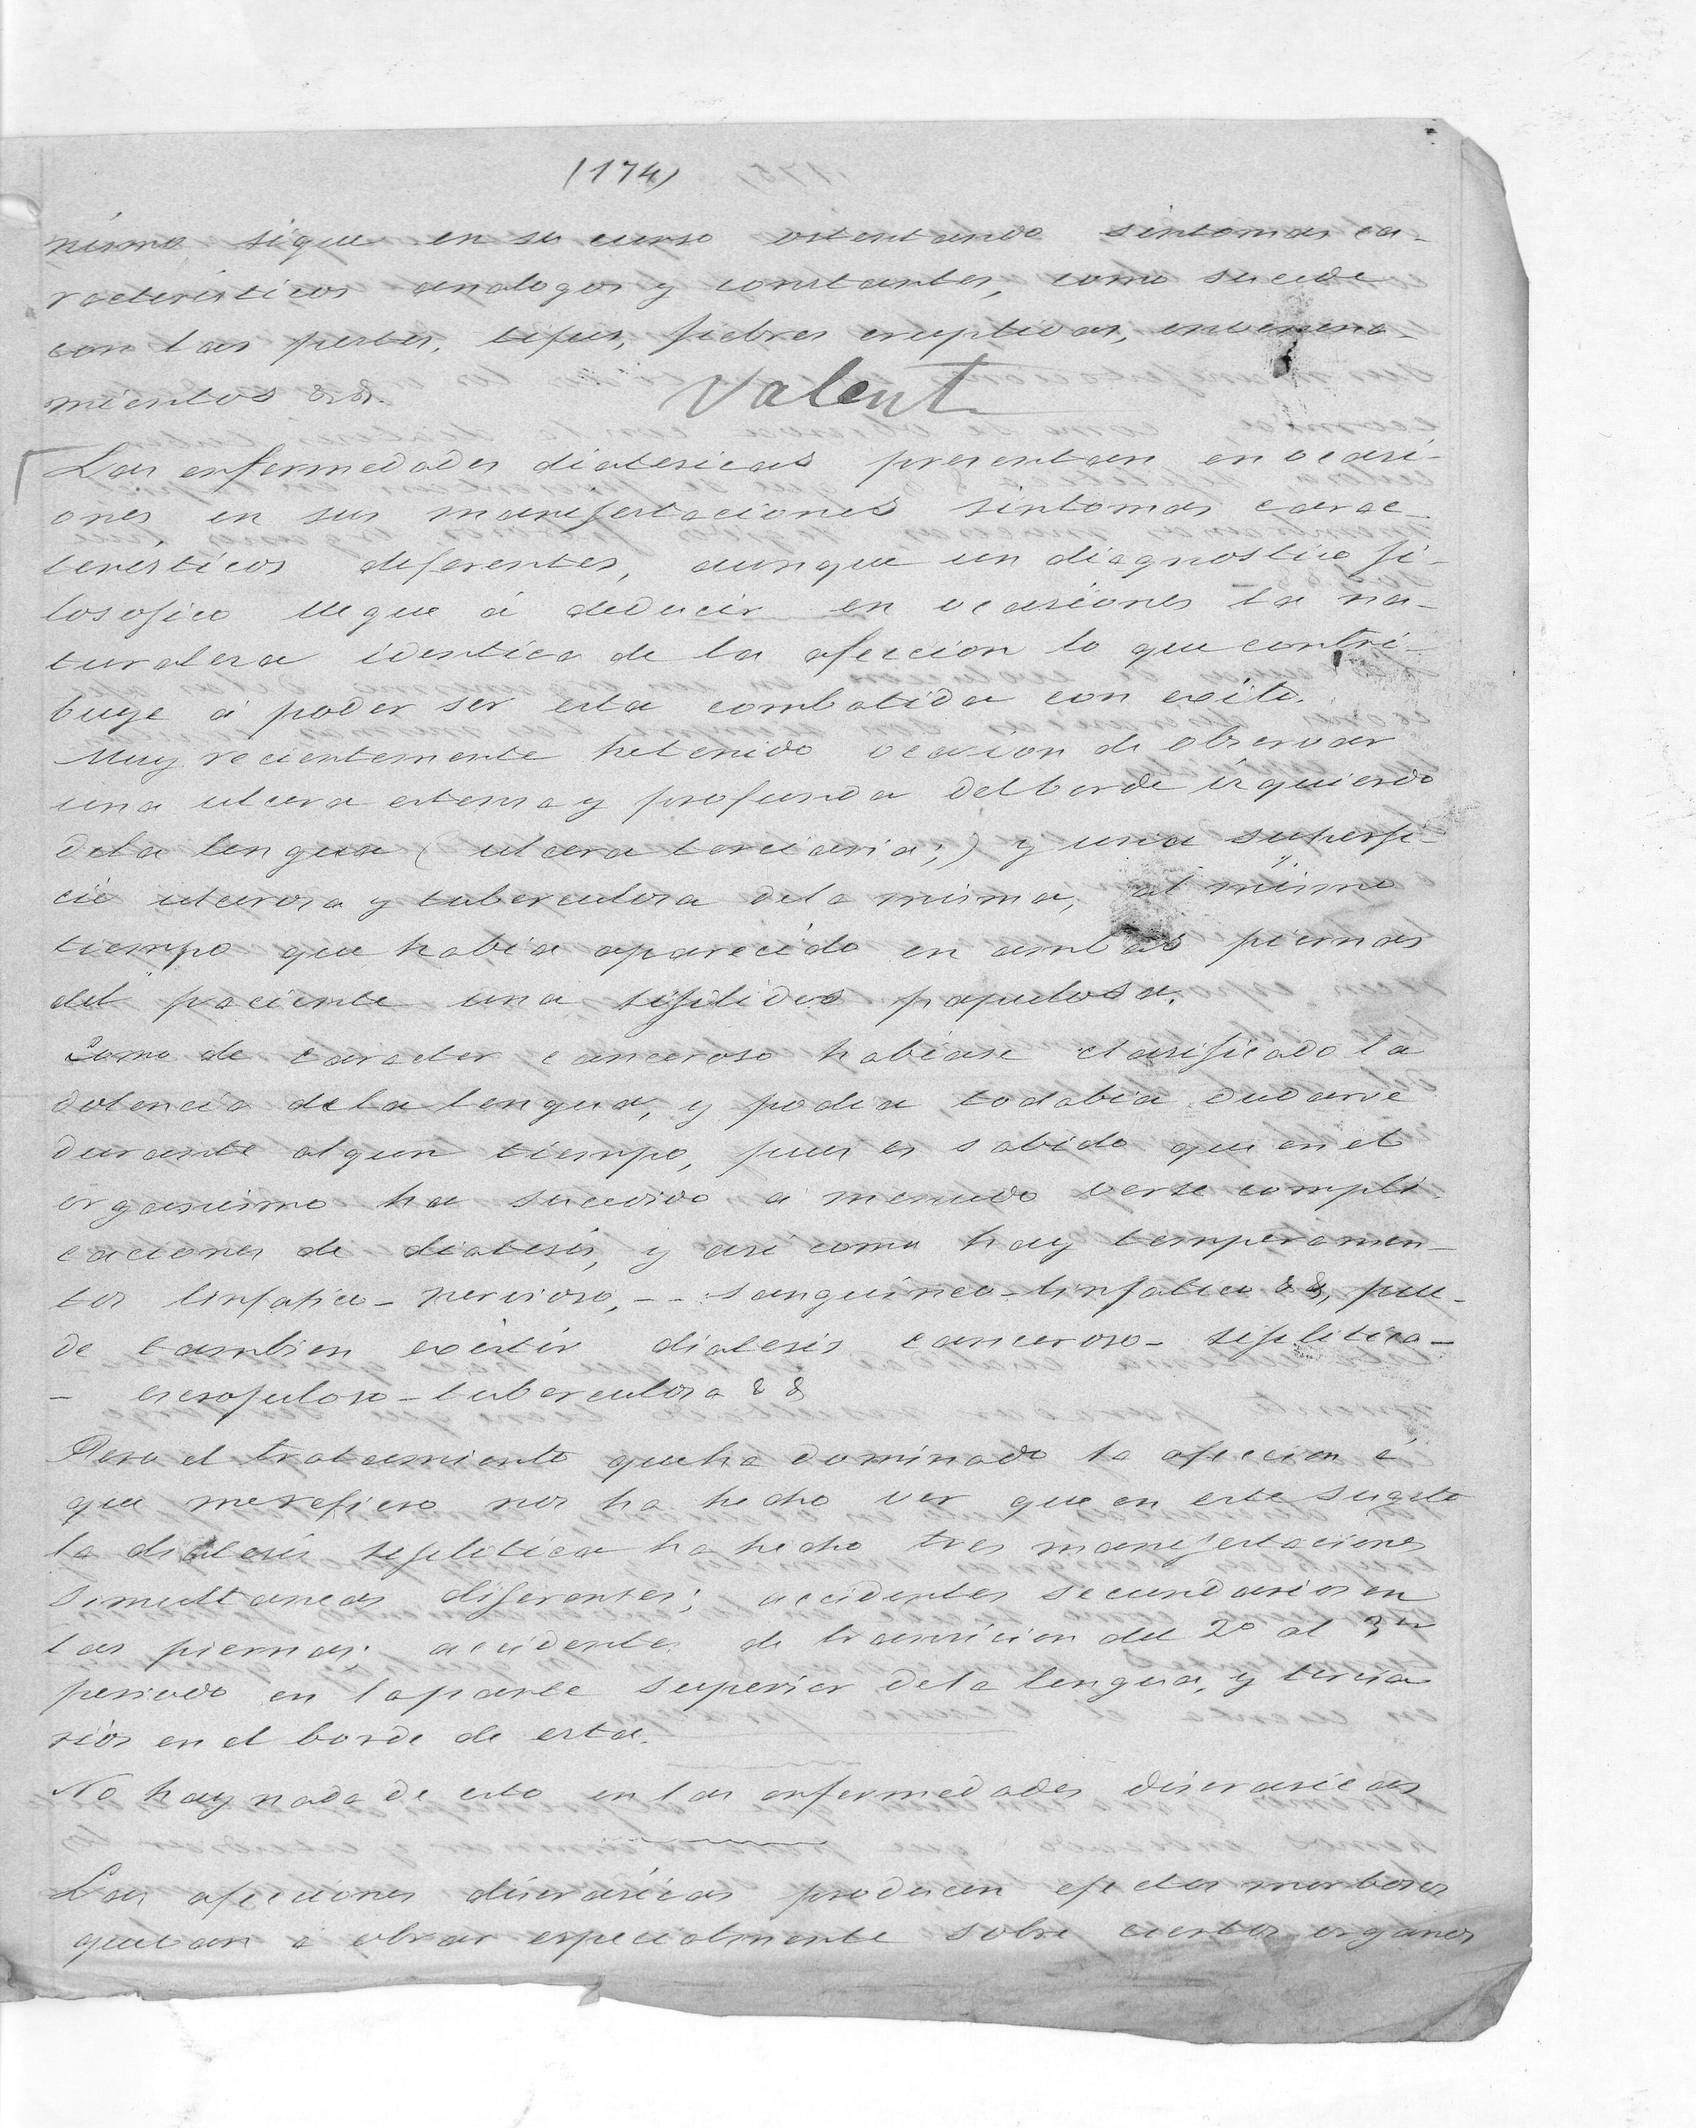 (174)
nismo sigue en su curso ostentando sintomas ca-
racteristicos analogos y constantes, como sucede
con las pestes, tifus, fiebres eruptivas, envenena-
mientos &.&.
Valent
Las enfermedades diatesicas presentan en ocasi-
ones en sus manifestaciones sintomas carac-
teristicos diferentes, aunque un diagnostico fi-
losofico llegue á deducir en ocasiones la na-
turalesa identica de la afeccion lo que contri-
buye á poder ser esta combatida con exito.
Muy recientemente hetenido ocasion de observar
una ulcera estensa y profunda delborde izquierdo
dela lengua (ulcera terciaria;) y una superfi-
cie ulcerosa y tuberculosa dela misma, al mismo
tiempo que habia aparecido en ambas piernas
del paciente una sifilides papulosa.
Como de caracter canceroso habiase clasificado la
dolencia dela lengua, y podia todabia dudarse
durante algun tiempo, pues es sabido que en el
organismo ha sucedido á menudo verse compli-
caciones de diatesis, y asi como hay temperamen-
tos linfatico-nervioso, -- sanguineo-linfatico &&, pue-
de tambien existir diatesis canceroso-sifilitica-
- escrofuloso-tuberculosa &&
Pero el tratamiento queha dominado la afeccion á
que merefiero nos ha hecho ver que en este sugeto
la diatesis sifilitica ha hecho tres manifestaciones
simultaneas diferentes; accidentes secundarios en
las piernas; accidentes de transicion del 2º al 3er
periodo en laparte superior dela lengua, y tercia
rios en el borde de esta.
No hay nada de esto en las enfermedades discrasicas
Las afecciones discrasicas producen efectos morbosos
quevan á obrar especialmente sobre ciertos organos